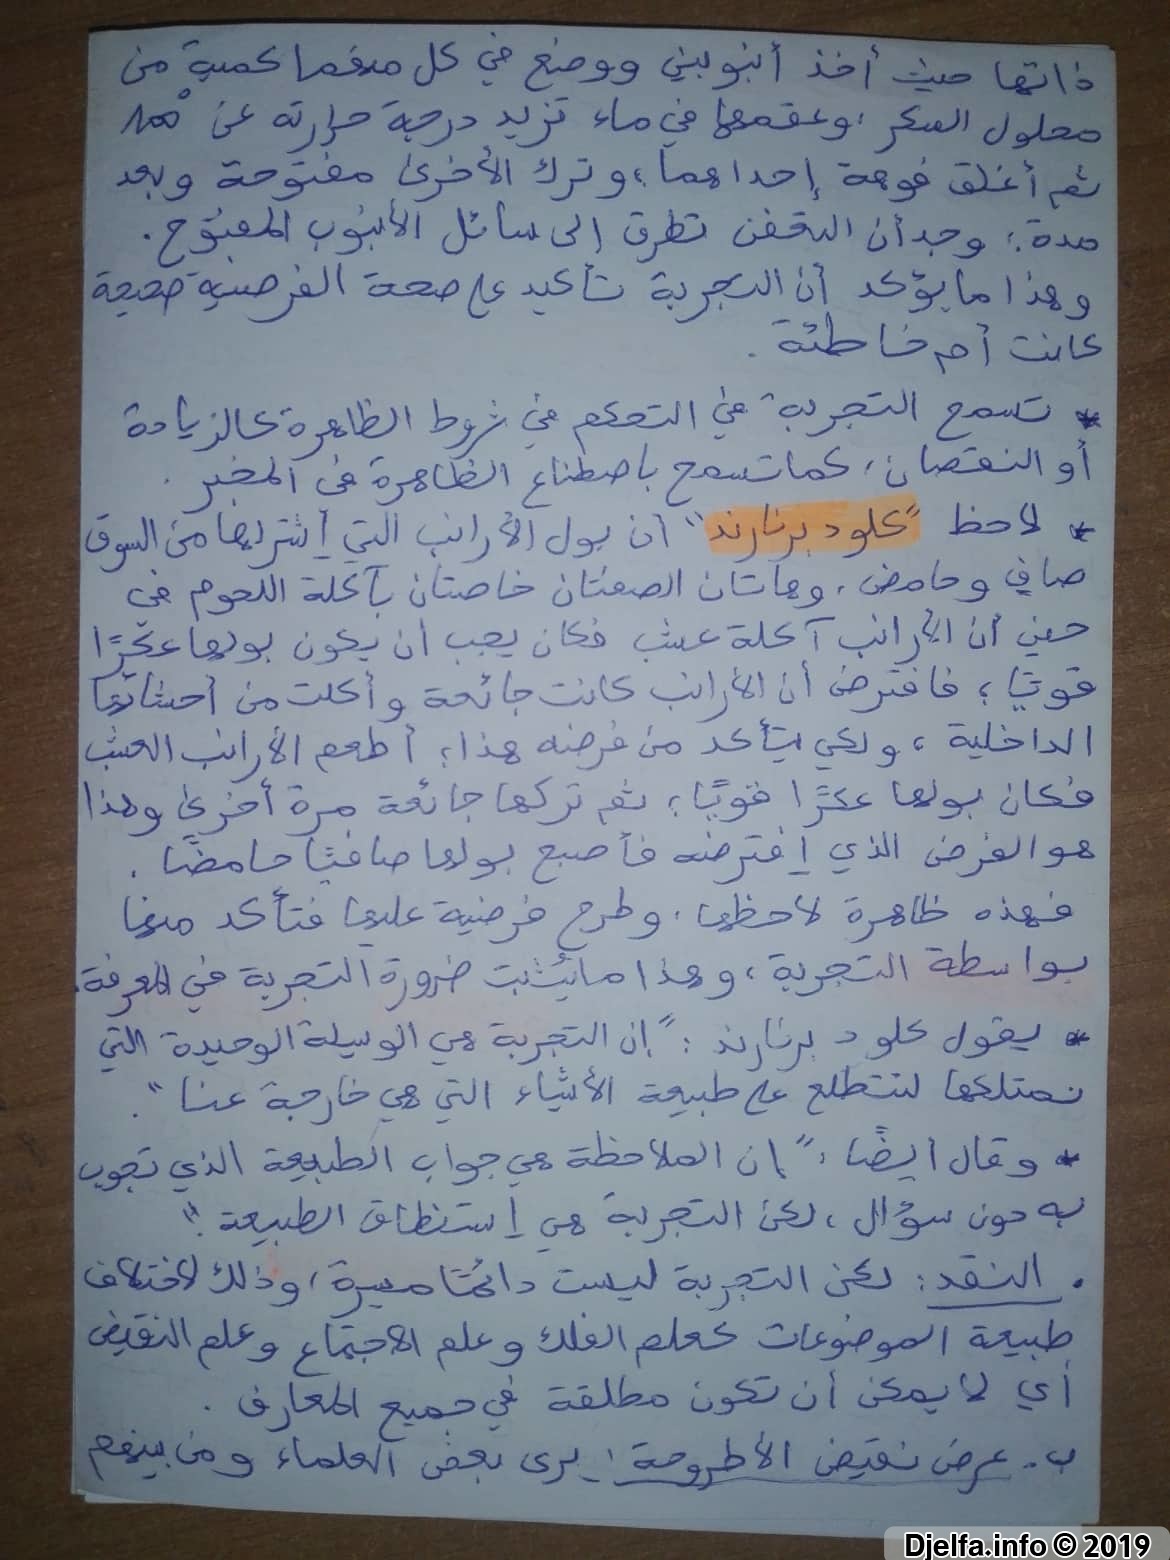 ذاتها حيث أخذ أنبوبيني ووضع في كل منهما كمية من
محلول السكر، وعقمها في ماء تزيد درجة حرارته عن °100
ثم أغلق فوهة إحداهما، وترك الأخرى مفتوحة وبعد
مدة؛ وجد أن التعفن تطرق إلى سائل الأنبوب المفتوح.
وهذا ما يؤكد أن التجربة تأكيد على صحة الفرضية صحيحة
كانت أم خاطئة.
* تسمح التجربة في التحكم في شروط الظاهرة كالزيادة
أو النقصان، كما تسمح باصطناع الظاهرة في المخبر.
* لاحظ "كلود برنارند" أن بول الأرانب التي إشتريها من السوق
صافي وحامض، وهاتان الصفتان خاصتان بآكلة اللحوم في
حين أن الأرانب آكلة عشب فكان يجب أن يكون بولها عكرًا
قويًا؛ فافترض أن الأرانب كانت جائعة وأكلت من أحشائها
الداخلية، ولكي يتأكد من فرضه هذا؛ أطعم الأرانب العشب
فكان بولها عكرًا قويًا؛ ثم تركها جائعة مرة أخرى وهذا
هو الفرض الذي إفترضه فأصبح بولها صافيًا حامضًا.
فهذه ظاهرة لاحظها، وطرح فرضية عليها فتأكد منها
بواسطة التجربة، وهذا ما يُثبت ضرورة التجربة في المعرفة.
* يقول كلود برنارند: "إن التجربة هي الوسيلة الوحيدة التي
نمتلكها لنتطلع على طبيعة الأشياء التي هي خارجة عنا".
* وقال أيضًا: "إن الملاحظة هي جواب الطبيعة الذي تجوب
به دون سؤال، لكن التجربة هي إستنطاق الطبيعة."
. النقد: لكن التجربة ليست دائمًا ميسرة، وذلك لاختلاف
طبيعة الموضوعات كعلم الفلك وعلم الاجتماع وعلم النقيض
أي لا يمكن أن تكون مطلقة في جميع المعارف.
ب- عرض نقيض الأطروحة: يرى بعض العلماء ومن بينهم
Djelfa.info © 2019